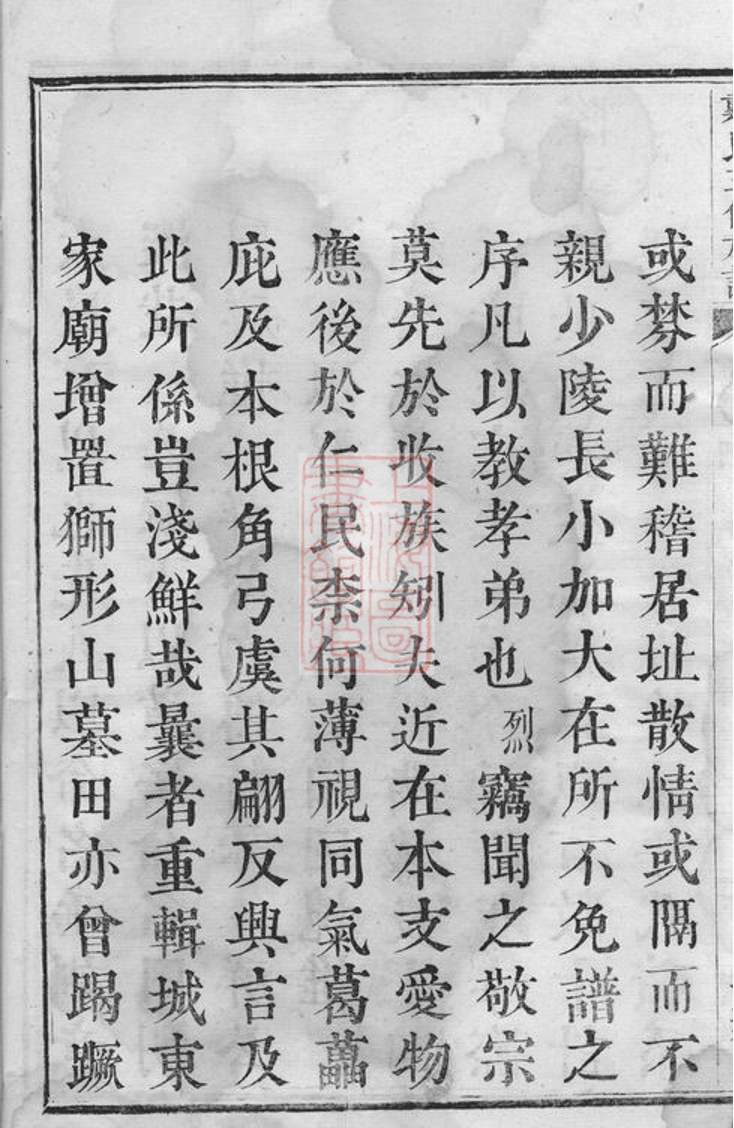 或棼而難稽居址散情或隔而不
親少陵長小加大在所不免譜之
序凡以教孝弟也烈竊聞之敬宗
莫先於收族矧夫近在本支愛物
應後於仁民柰何薄視同氣葛藟
庇及本根角弓虞其翩反興言及
此所係豈淺鮮哉曩者重輯城東
家廟增置獅形山墓田亦曾踢蹶